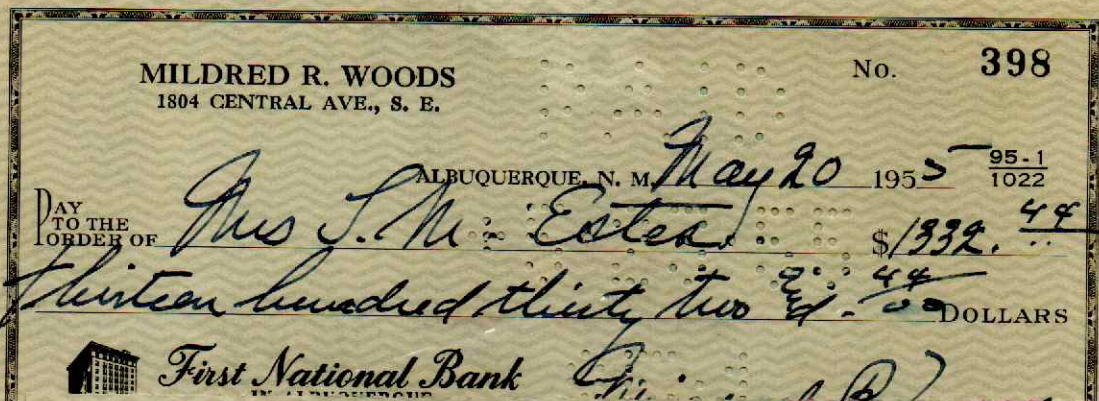 MILDRED R. WOODS
1804 CENTRAL AVE., S. E.
No. 398
ALBUQUERQUE, N. M. May 20 1955 95-1/1022
PAY TO THE ORDER OF Mrs S. M. Estes $1332. 44
thirteen hundred thirty two & 44/00 DOLLARS
First National Bank
IN ALBUQUERQUE